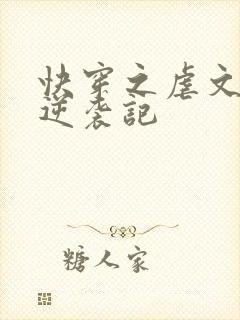 快穿之虐文
逆袭記
糖人家